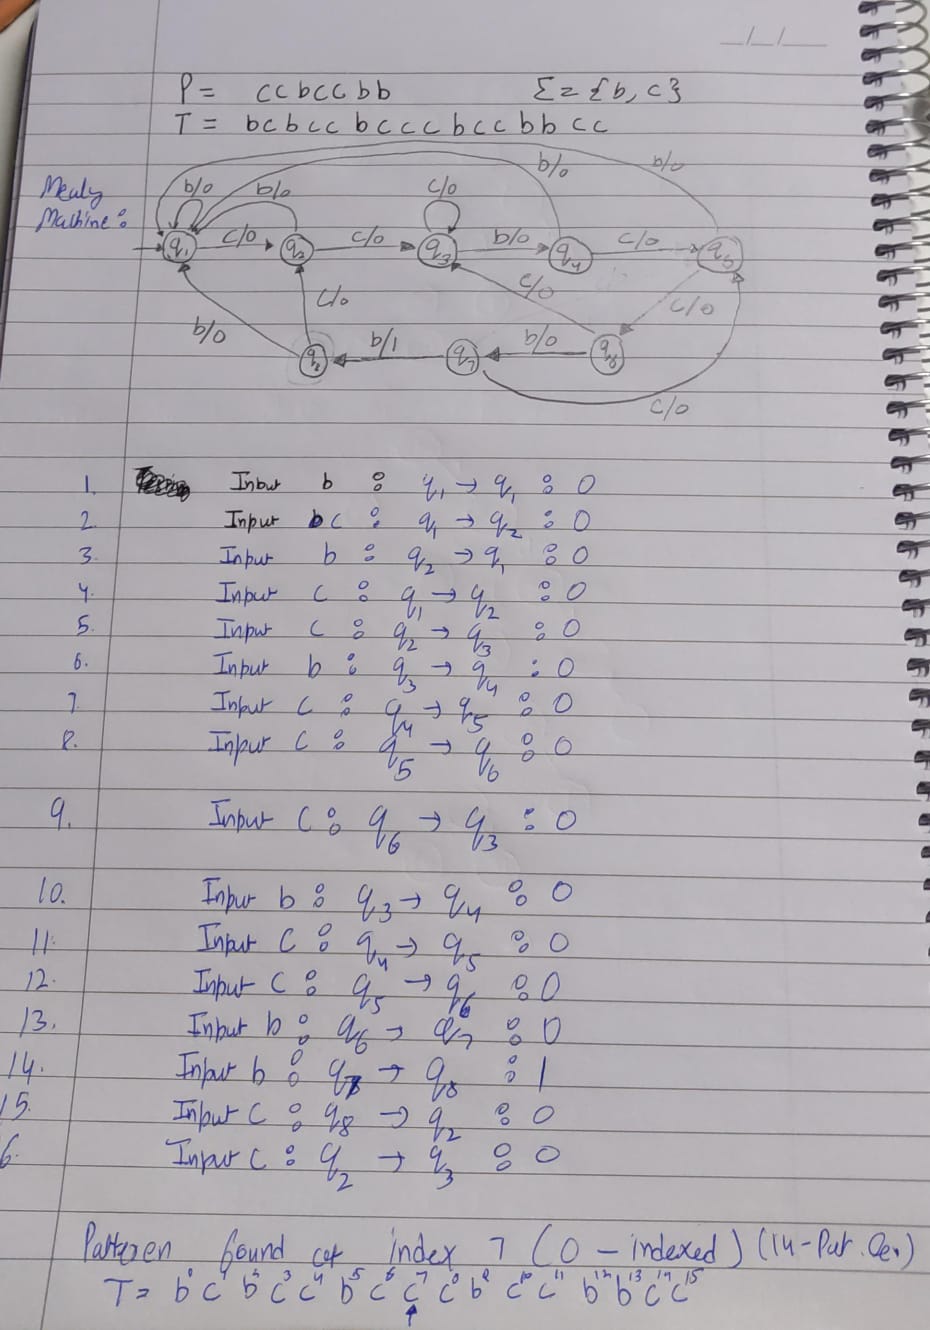 __/__/__
P = ccbccbb Σ = {b, c}
T = bcbccbcccbccbbcc
Mealy
Machine:
b/0 b/0 c/0 b/0 b/0
q1 c/0 q2 c/0 q3 b/0 q4 c/0 q5
b/0 c/0 c/0 c/0
q8 b/1 q7 b/0 q6
c/0
1. Input b : q1 → q1 : 0
2 Input c : q1 → q2 : 0
3. Input b : q2 → q1 : 0
4. Input c : q1 → q2 : 0
5. Input c : q2 → q3 : 0
6. Input b : q3 → q4 : 0
7. Input c : q4 → q5 : 0
8. Input c : q5 → q6 : 0
9. Input c : q6 → q3 : 0
10. Input b : q3 → q4 : 0
11. Input c : q4 → q5 : 0
12. Input c : q5 → q6 : 0
13. Input b : q6 → q7 : 0
14. Input b : q7 → q8 : 1
15. Input c : q8 → q2 : 0
6. Input c : q2 → q3 : 0
Patteren found at index 7 (0-indexed) (14-Pat.
T = b0 c1 b2 c3 c4 b5 c6 c7 c8 b9 c10 c11 b12 b13 c14 c15